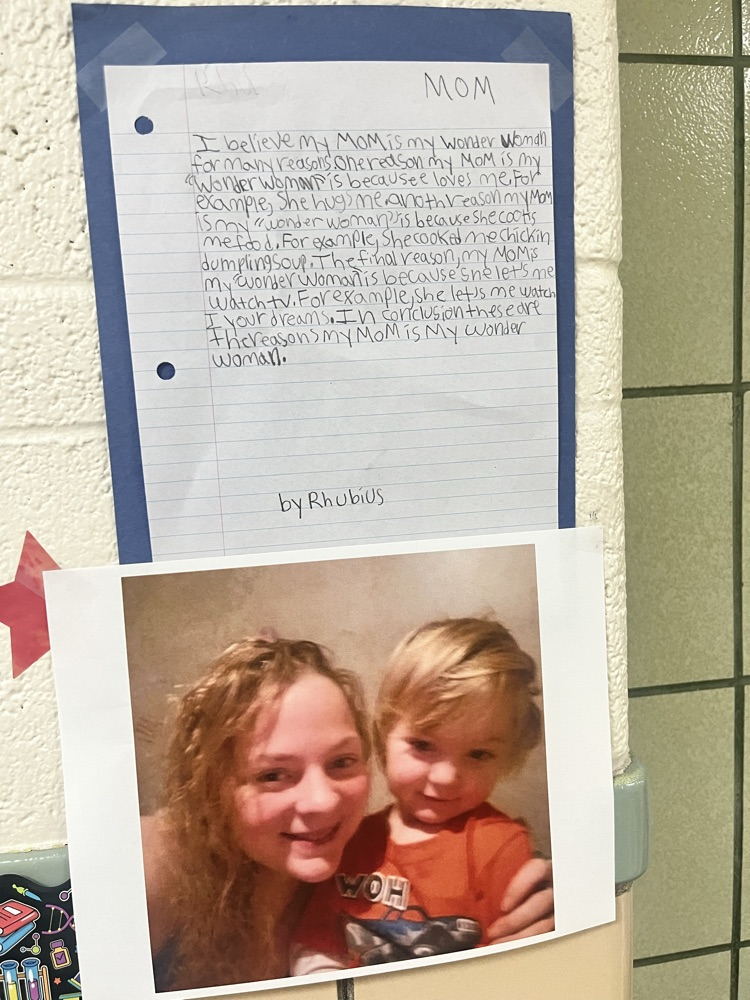 MOM
I believe my MOM is my wonder Woman
for many reasons. One reason my MOM is my
"Wonder Woman" is becausee loves me. For
example, She hugs me. anoth reason my Mom
is my "wonder woman" is because she cooks
me food. For example, She cooked me chickin
dumpling soup. The final reason, my MOM is
my "wonder woman" is because she let's me
watch tv. For example, she lets me watch
I your dreams. In conclusion these are
the reasons my MOM is My wonder
woman.
by Rhubius
WOH